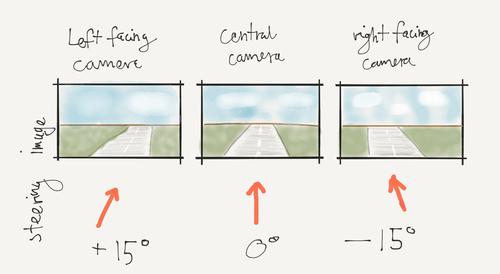 Left facing
camera
Central
camera
right facing
camera
image
steering
+15°
0°
-15°